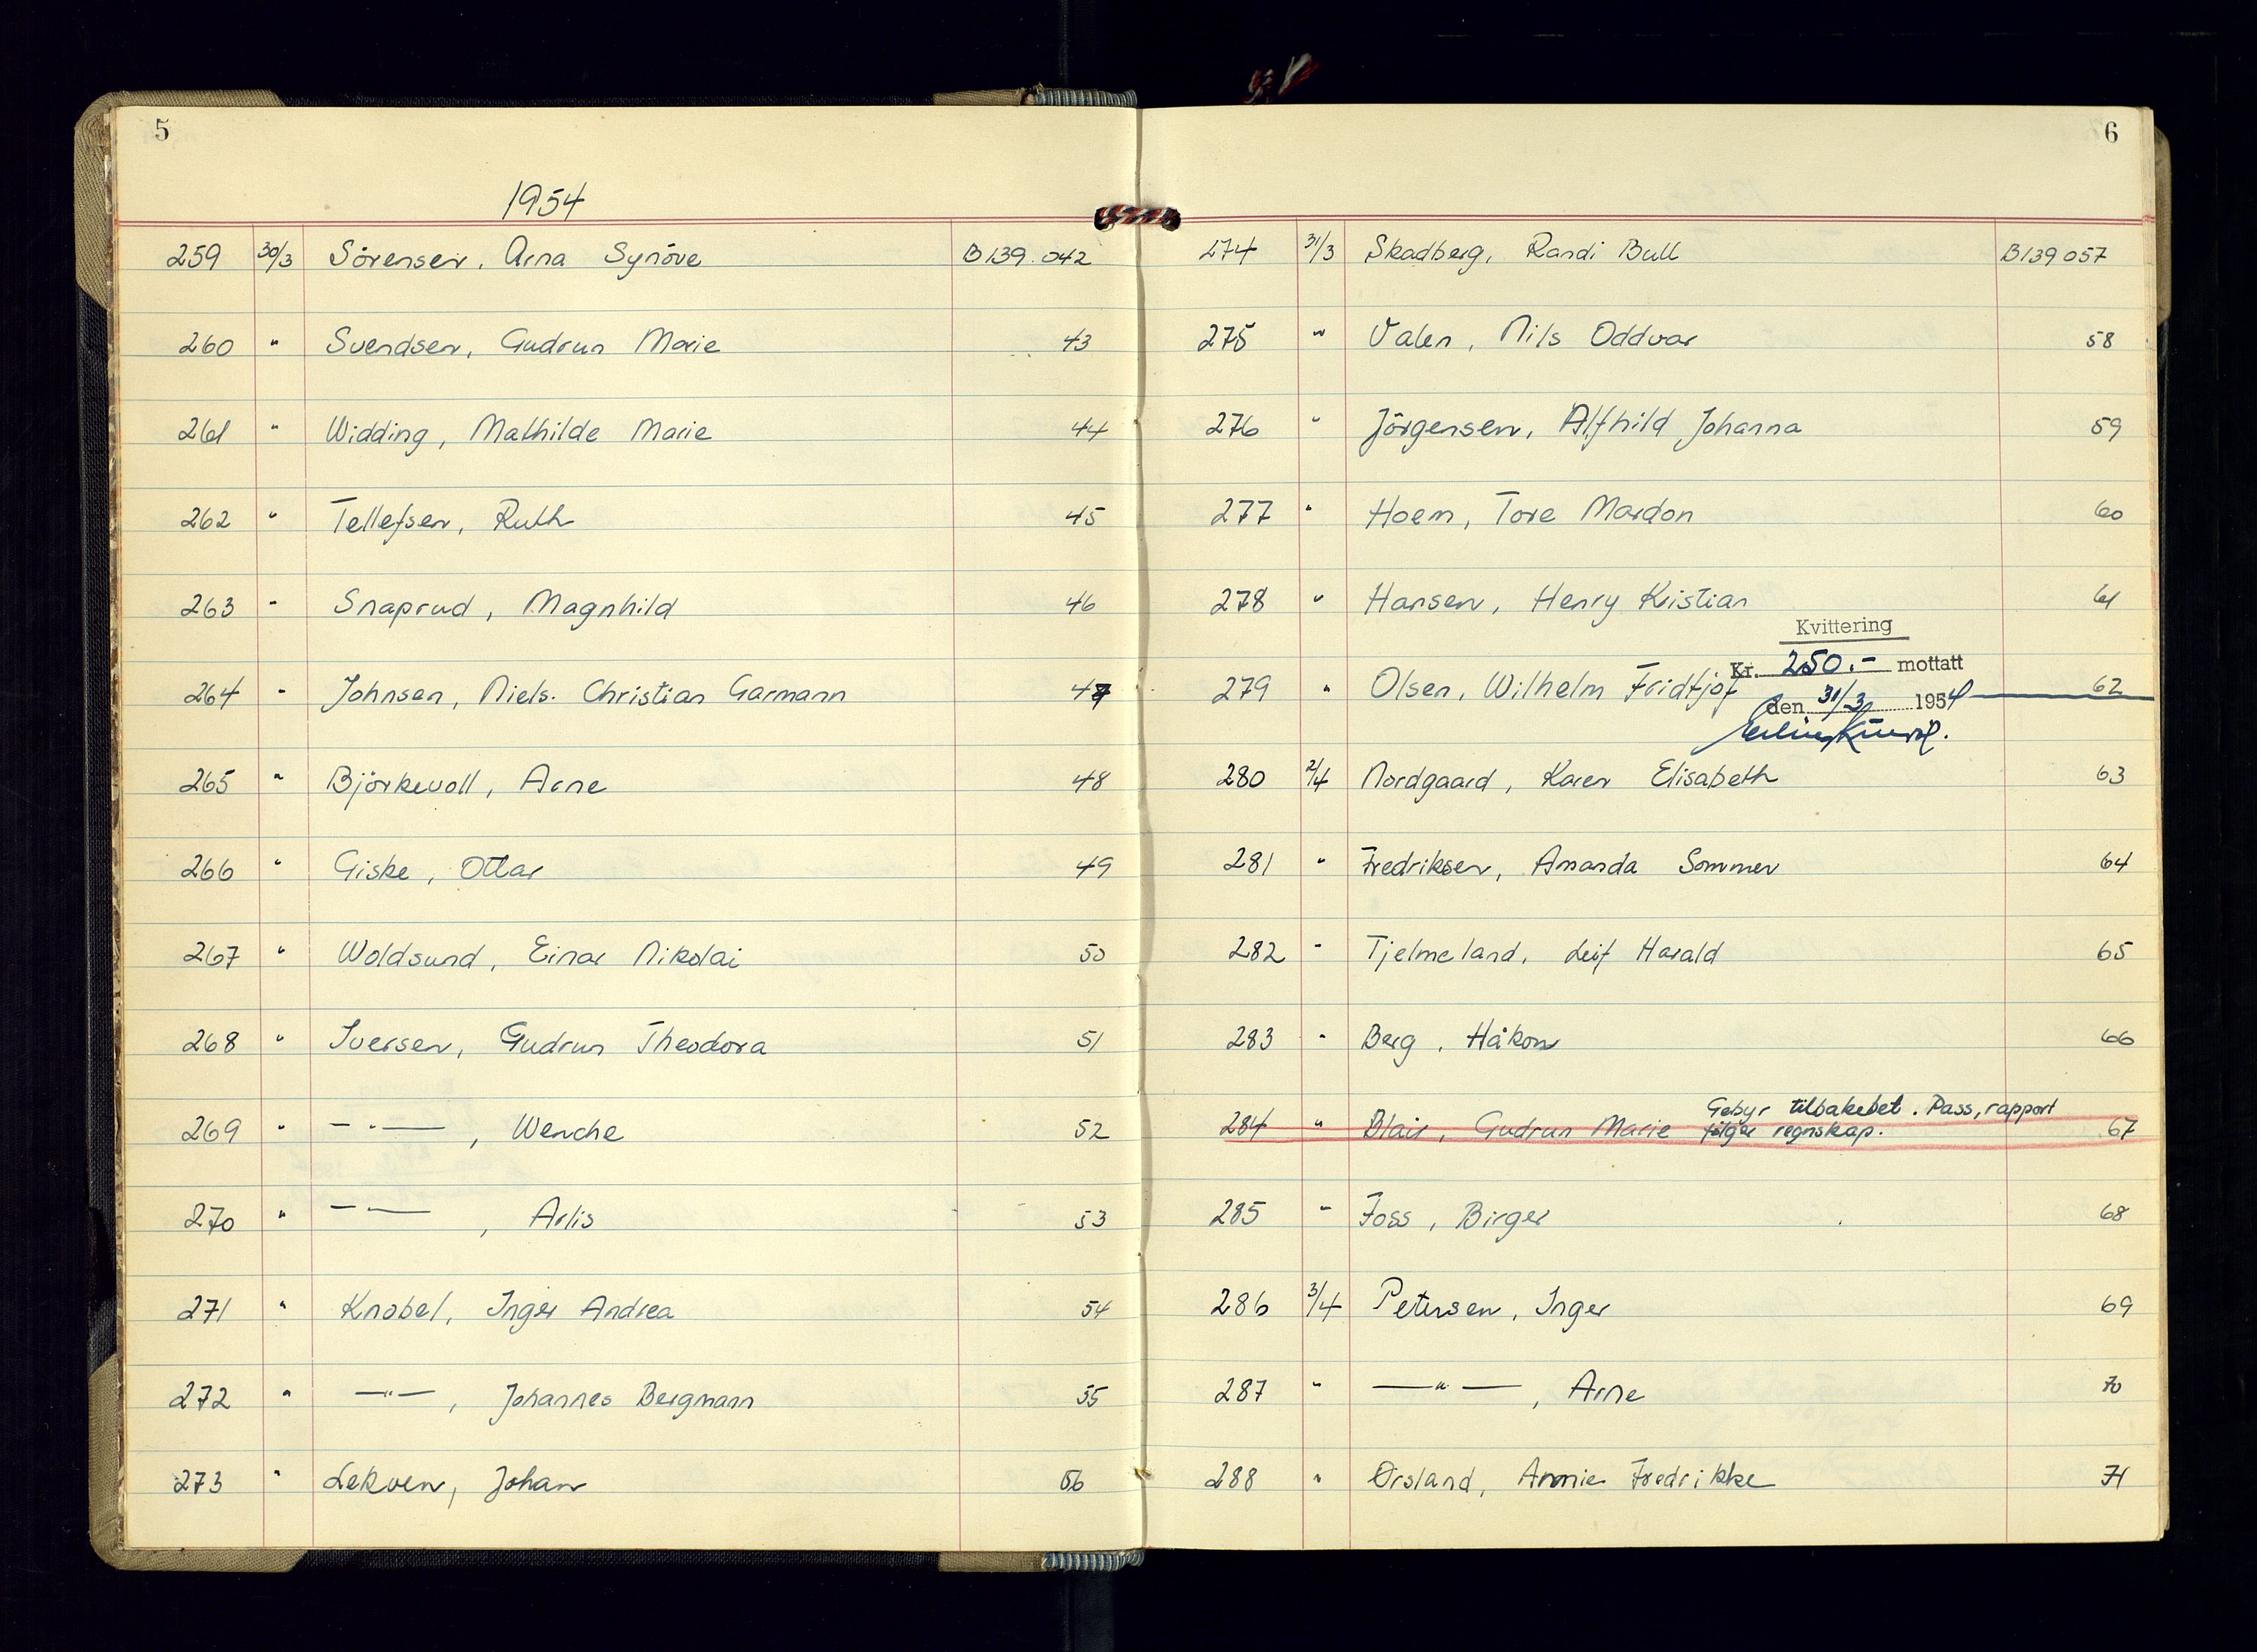 5
1954
259 30/3 Sörensen, Arna Synöve B139.042
260 " Svendsen, Gudrun Marie 43
261 " Widding, Mathilde Marie 44
262 " Tellefsen, Ruth 45
263 " Snaprud, Magnhild 46
264 " Johnsen, Niels Christian Garmann 47
265 " Björkevoll, Arne 48
266 " Giske, Ottar 49
267 " Woldsund, Einar Nikolai 50
268 " Iversen, Gudrun Theodora 51
269 " — " —, Wenche 52
270 " — " —, Arlis 53
271 " Knobel, Inger Andrea 54
272 " — " —, Johannes Bergmann 55
273 " Lekven, Johan 56
6
274 31/3 Skadberg, Randi Bull B139057
275 " Valen, Nils Oddvar 58
276 " Jörgensen, Alfhild Johanna 59
277 " Hoem, Tore Mardon 60
278 " Hansen, Henry Kristian 61
Kvittering
Kr. 250.- mottatt
279 " Olsen, Wilhelm Fridtjof 62
den 31/3 1954
280 2/4 Nordgaard, Karen Elisabeth 63
281 " Fredriksen, Amanda Sommer 64
282 " Tjelmeland, Leif Harald 65
283 " Berg, Håkon 66
Gebyr tilbakebet. Pass, rapport
284 " Blair, Gudrun Marie følger regnskap. 67
285 " Foss, Birger 68
286 3/4 Petersen, Inger 69
287 " — " —, Arne 70
288 " Orsland, Annie Fredrikke 71